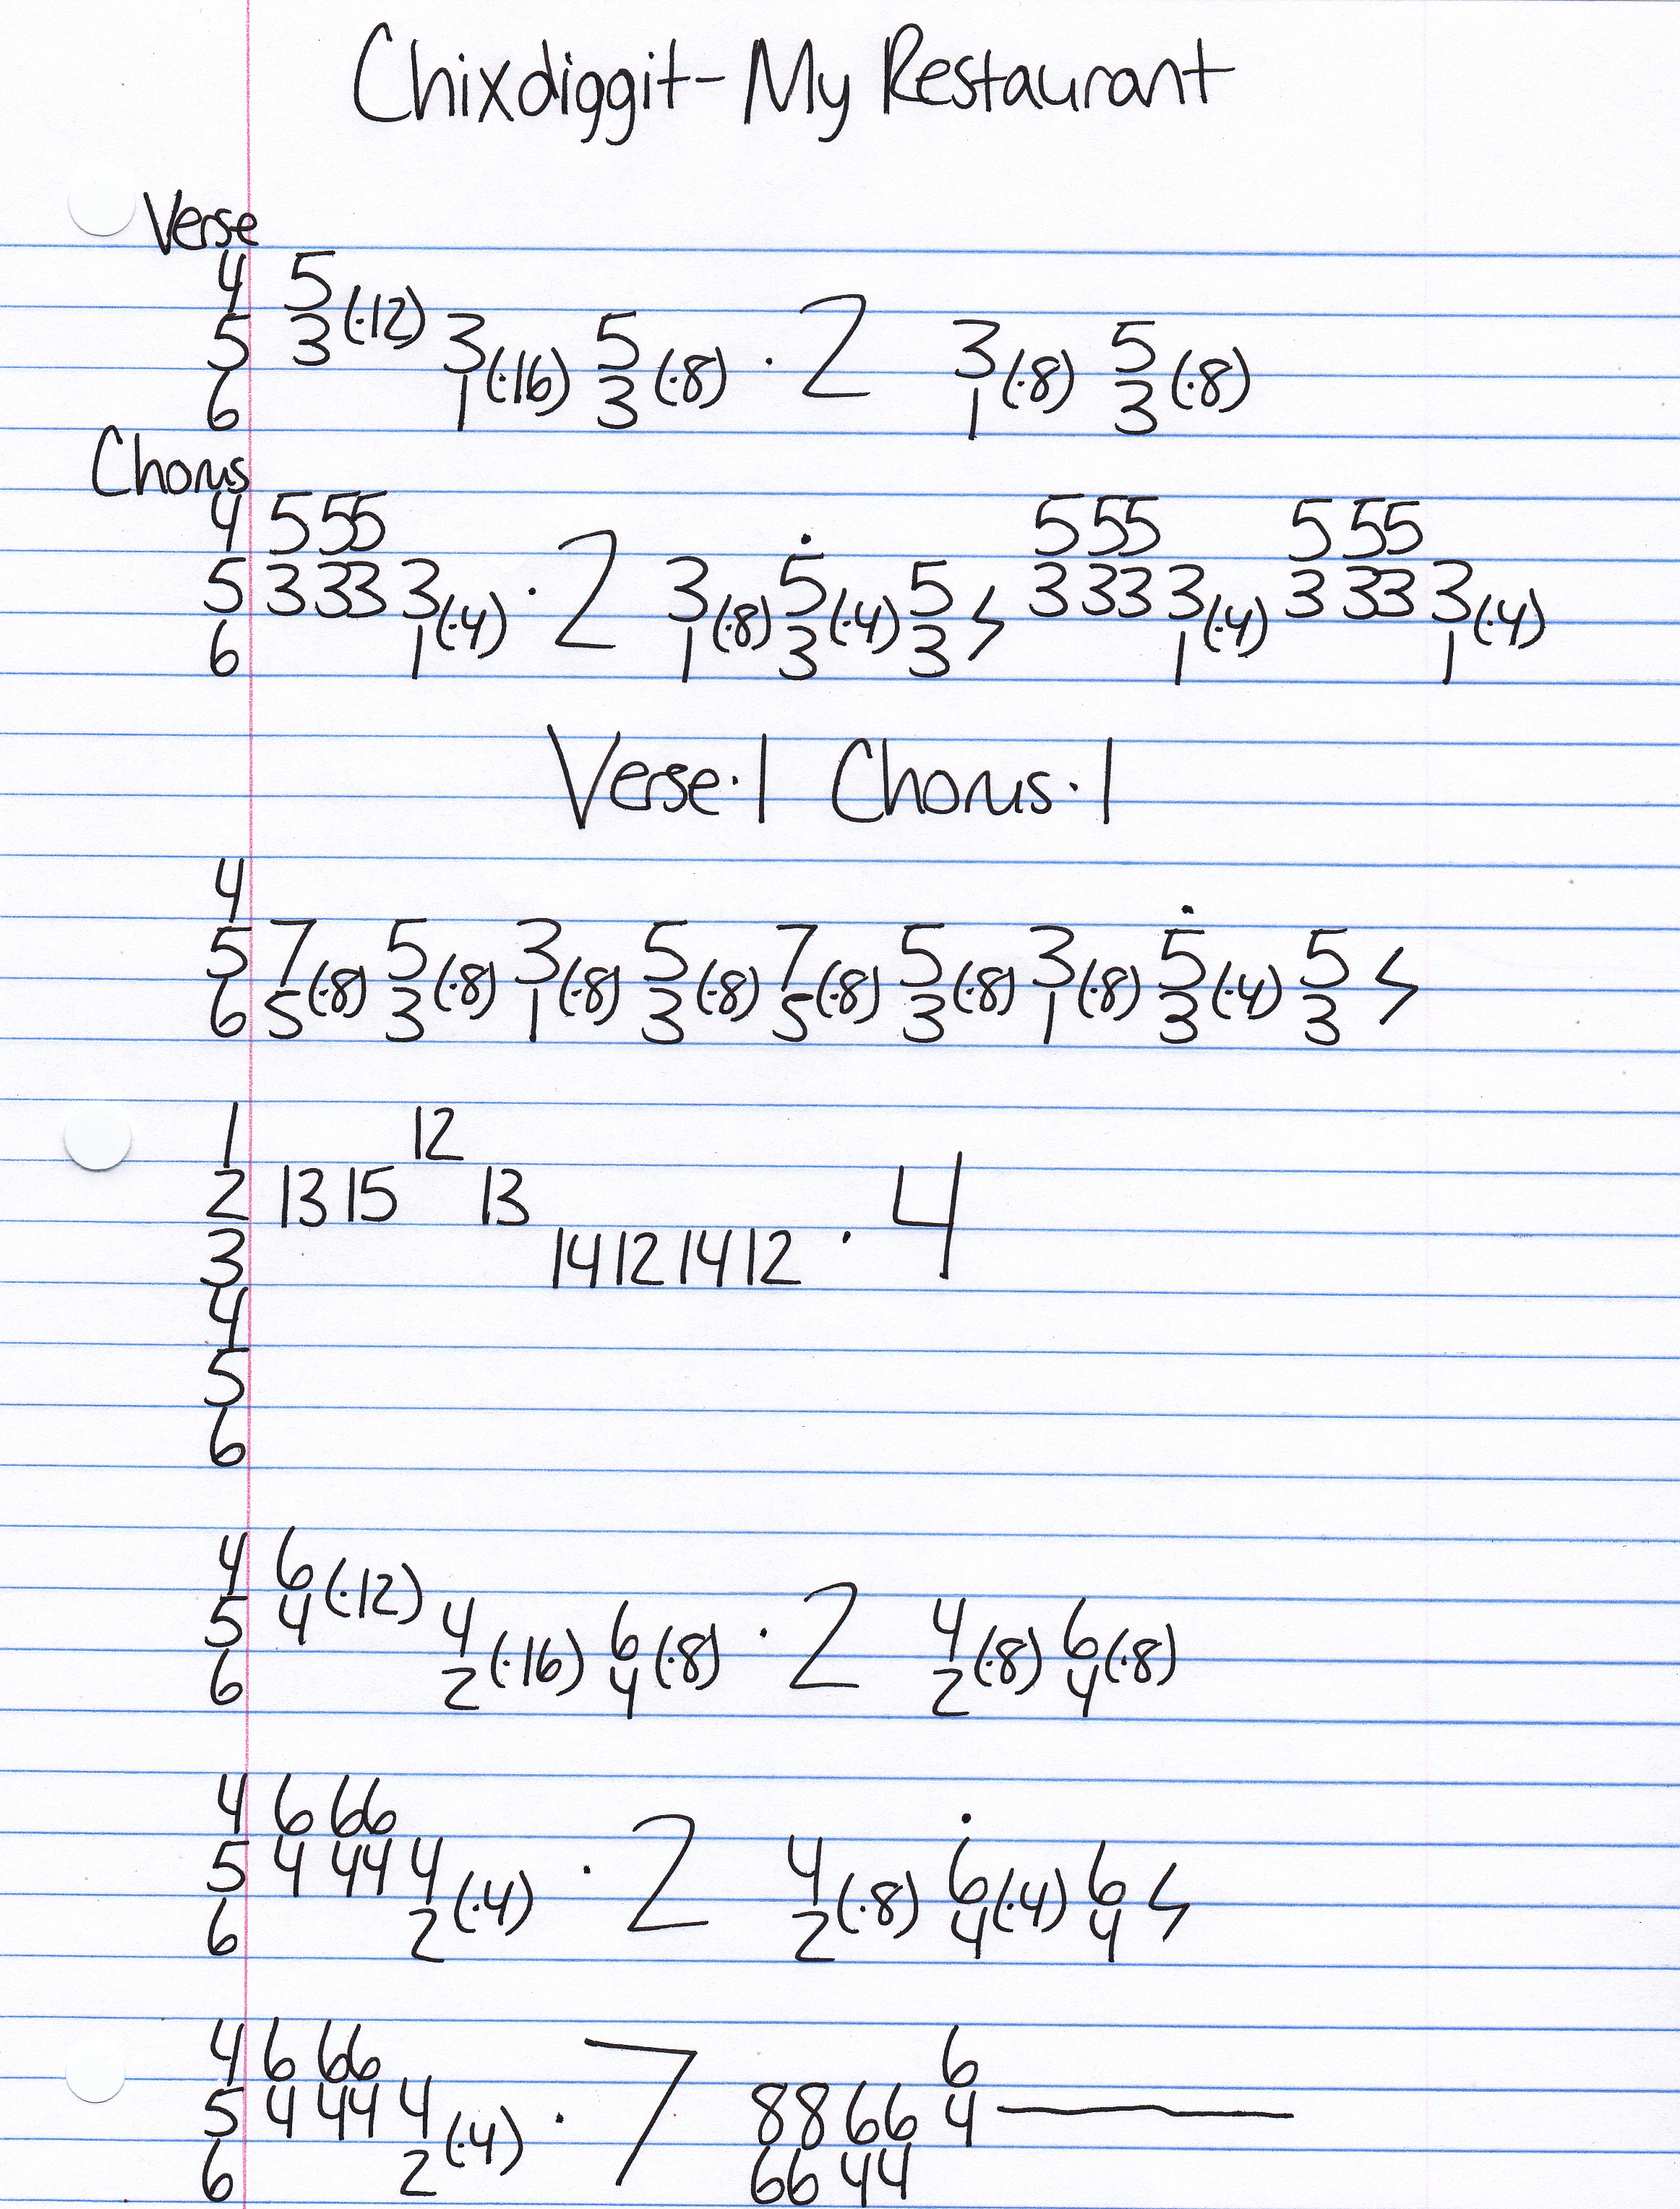 Chixdiggit - My Restaurant
Verse
4 5
5 3 (·12) 3 5 · 2 3 5
6 1 (·16) 3 (·8) 1 (·8) 3 (·8)
Chorus
4 5 55 5 55 5 55
5 3 33 3 · 2 3 5 5 3 33 3 3 33 3
6 1 (·4) 1 (·8) 3 (·4) 3 1 (·4) 1 (·4)
Verse·1 Chorus·1
4
5 7 5 3 5 7 5 3 5 5
6 5 (·8) 3 (·8) 1 (·8) 3 (·8) 5 (·8) 3 (·8) 1 (·8) 3 (·4) 3
1 12
2 13 15 13 · 4
3 14 12 14 12
4
5
6
4 6
5 4 (·12) 4 6 · 2 4 6
6 2 (·16) 4 (·8) 2 (·8) 4 (·8)
4 6 66
5 4 44 4 · 2 4 6 6
6 2 (·4) 2 (·8) 4 (·4) 4
4 6 66 6
5 4 44 4 · 7 8 8 6 6 4
6 2 (·4) 6 6 4 4